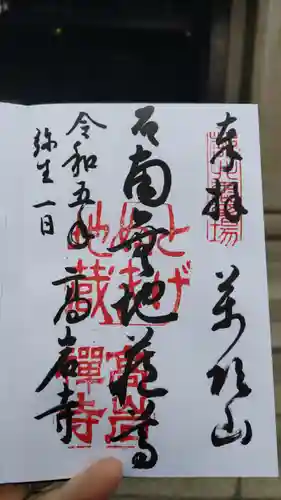 奉拝
萬頂山
南無地蔵尊
令和五年
弥生一日
高岩寺
とげ
ぬき
地蔵
高岩
禪寺